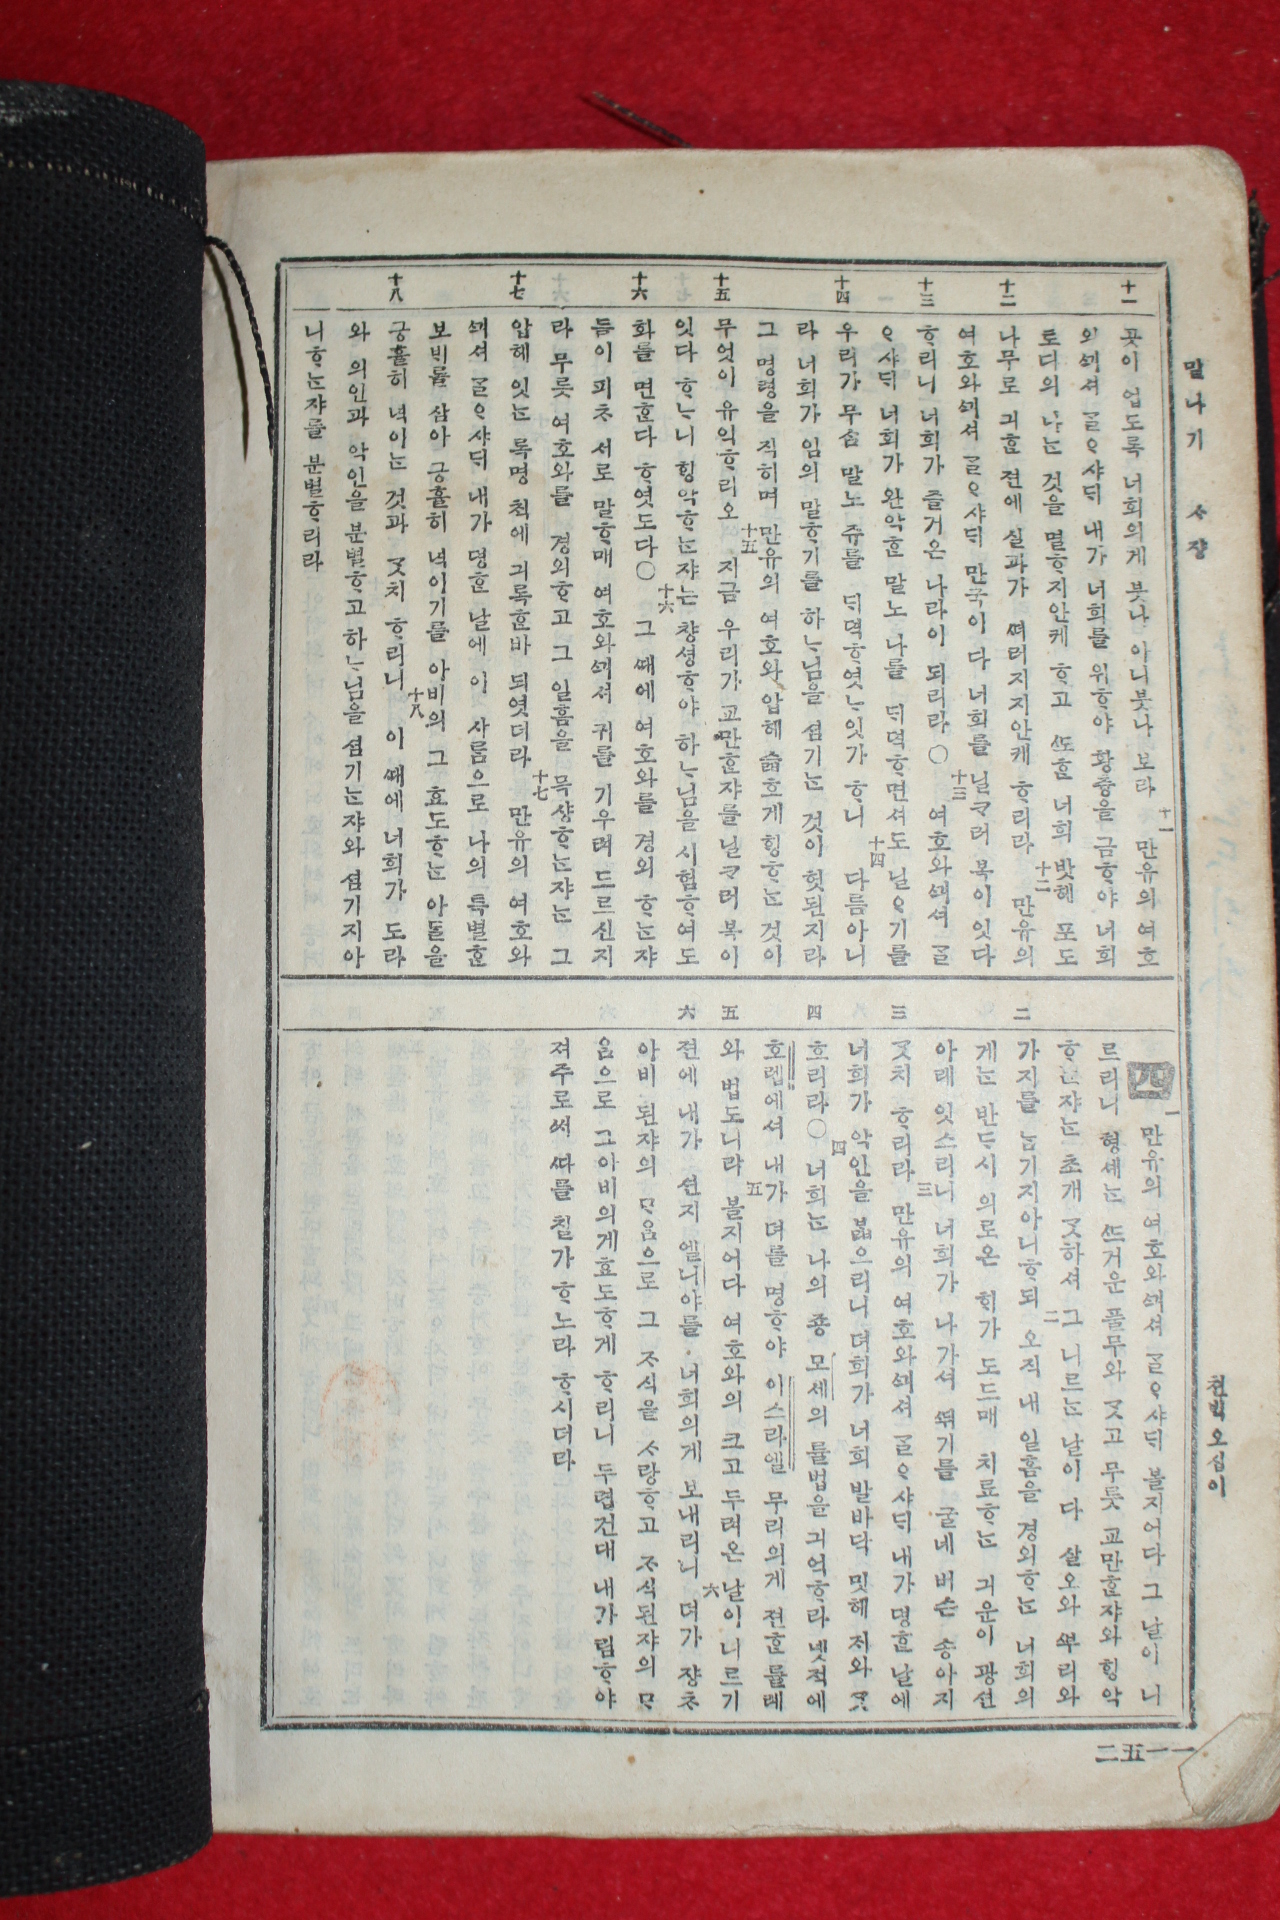 말나기 ᄉᆞ쟝
十一
十二
十三
十四
十五
十六
十七
十八
곳이 업도록 너희의게 붓나 아니붓나 보라 十一 만유의 여호
와ᄭᅴ셔 ᄀᆞᆯᄋᆞ샤ᄃᆡ 내가 너희를 위ᄒᆞ야 황츙을 금ᄒᆞ야 너희
토디의 나ᄂᆞᆫ 것을 멸ᄒᆞ지안케 ᄒᆞ고 ᄯᅩᄒᆞᆫ 너희 밧헤 포도
나무로 긔ᄒᆞᆫ 젼에 실과가 ᄯᅥ러지지안케 ᄒᆞ리라 十二 만유의
여호와ᄭᅴ셔 ᄀᆞᆯᄋᆞ샤ᄃᆡ 만국이 다 너희를 닐ᄏᆞ러 복이 잇다
ᄒᆞ리니 너희가 즐거온 나라이 되리라 ○ 十三 여호와ᄭᅴ셔 ᄀᆞᆯ
ᄋᆞ샤ᄃᆡ 너희가 완악ᄒᆞᆫ 말노 나를 ᄃᆡ뎍ᄒᆞ면셔도 닐ᄋᆞ기를
우리가 무ᄉᆞᆷ 말노 쥬를 ᄃᆡ뎍ᄒᆞ엿ᄂᆞ잇가 ᄒᆞ니 十四 다름아니
라 너희가 임의 말ᄒᆞ기를 하ᄂᆞ님을 셤기ᄂᆞᆫ 것이 헛된지라
그 명령을 직히며 만유의 여호와 압헤 슯흐게 ᄒᆡᆼᄒᆞᄂᆞᆫ 것이
무엇이 유익ᄒᆞ리오 十五 지금 우리가 교만ᄒᆞᆫ쟈를 닐ᄏᆞ러 복이
잇다 ᄒᆞᄂᆞ니 ᄒᆡᆼ악ᄒᆞᄂᆞᆫ쟈ᄂᆞᆫ 챵셩ᄒᆞ야 하ᄂᆞ님을 시험ᄒᆞ여도
화를 면ᄒᆞᆫ다 ᄒᆞ엿도다 ○ 十六 그 ᄯᅢ에 여호와를 경외 ᄒᆞᄂᆞᆫ쟈
들이 피ᄎᆞ 서로 말ᄒᆞ매 여호와ᄭᅴ셔 귀를 기우려 드르신지
라 무릇 여호와를 경외ᄒᆞ고 그 일홈을 묵샹ᄒᆞᄂᆞᆫ쟈ᄂᆞᆫ 그
압헤 잇ᄂᆞᆫ 록명 ᄎᆡᆨ에 긔록ᄒᆞᆫ바 되엿더라 十七 만유의 여호와
ᄭᅴ셔 ᄀᆞᆯᄋᆞ샤ᄃᆡ 내가 뎡ᄒᆞᆫ 날에 이 사ᄅᆞᆷ으로 나의 특별ᄒᆞᆫ
보ᄇᆡ를 삼아 긍휼히 넉이기를 아비의 그 효도ᄒᆞᄂᆞᆫ 아ᄃᆞᆯ을
긍휼히 넉이ᄂᆞᆫ 것과 ᄀᆞᆺ치 ᄒᆞ리니 十八 이 ᄯᅢ에 너희가 도라
와 의인과 악인을 분별ᄒᆞ고 하ᄂᆞ님을 셤기ᄂᆞᆫ쟈와 셤기지아
니ᄒᆞᄂᆞᆫ쟈를 분별ᄒᆞ리라
二
三
四
五
六
四 一 만유의 여호와ᄭᅴ셔 ᄀᆞᆯᄋᆞ샤ᄃᆡ 볼지어다 그 날이 니
르리니 형셰ᄂᆞᆫ ᄯᅳ거운 풀무와 ᄀᆞᆺ고 무릇 교만ᄒᆞᆫ쟈와 ᄒᆡᆼ악
ᄒᆞᄂᆞᆫ쟈ᄂᆞᆫ 초개 ᄀᆞᆺ하셔 그 니르ᄂᆞᆫ 날이 다 살오와 ᄲᅮ리와
가지를 ᄂᆞᆷ기지아니ᄒᆞ되 二 오직 내 일홈을 경외ᄒᆞᄂᆞᆫ 너희의
게ᄂᆞᆫ 반ᄃᆞ시 의로온 ᄒᆡ가 도드매 치료ᄒᆞᄂᆞᆫ 긔운이 광션
아래 잇스리니 너희가 나가셔 ᄯᅱ기를 굴네 버슨 송아지
ᄀᆞᆺ치 ᄒᆞ리라 三 만유의 여호와ᄭᅴ셔 ᄀᆞᆯᄋᆞ샤ᄃᆡ 내가 뎡ᄒᆞᆫ 날에
너희가 악인을 ᄇᆞᆲ으리니 뎌희가 너희 발바닥 밋헤 ᄌᆡ와 ᄀᆞᆺ
흐리라 ○ 四 너희ᄂᆞᆫ 나의 죵 모세의 률법을 긔억ᄒᆞ라 녯적에
호렙에셔 내가 뎌를 명ᄒᆞ야 이스라엘 무리의게 젼ᄒᆞᆫ 률례
와 법도니라 五 볼지어다 여호와의 크고 두려온 날이 니르기
젼에 내가 션지 엘니야를 너희의게 보내리니 六 뎌가 쟝ᄎᆞ
아비 된쟈의 ᄆᆞᄋᆞᆷ으로 그 ᄌᆞ식을 ᄉᆞ랑ᄒᆞ고 ᄌᆞ식된쟈의 ᄆᆞ
ᄋᆞᆷ으로 그아비의게 효도ᄒᆞ게 ᄒᆞ리니 두렵건대 내가 림ᄒᆞ야
져주로써 ᄯᅡ를 칠가 ᄒᆞ노라 ᄒᆞ시더라
쳔ᄇᆡᆨ오십이
二五一一